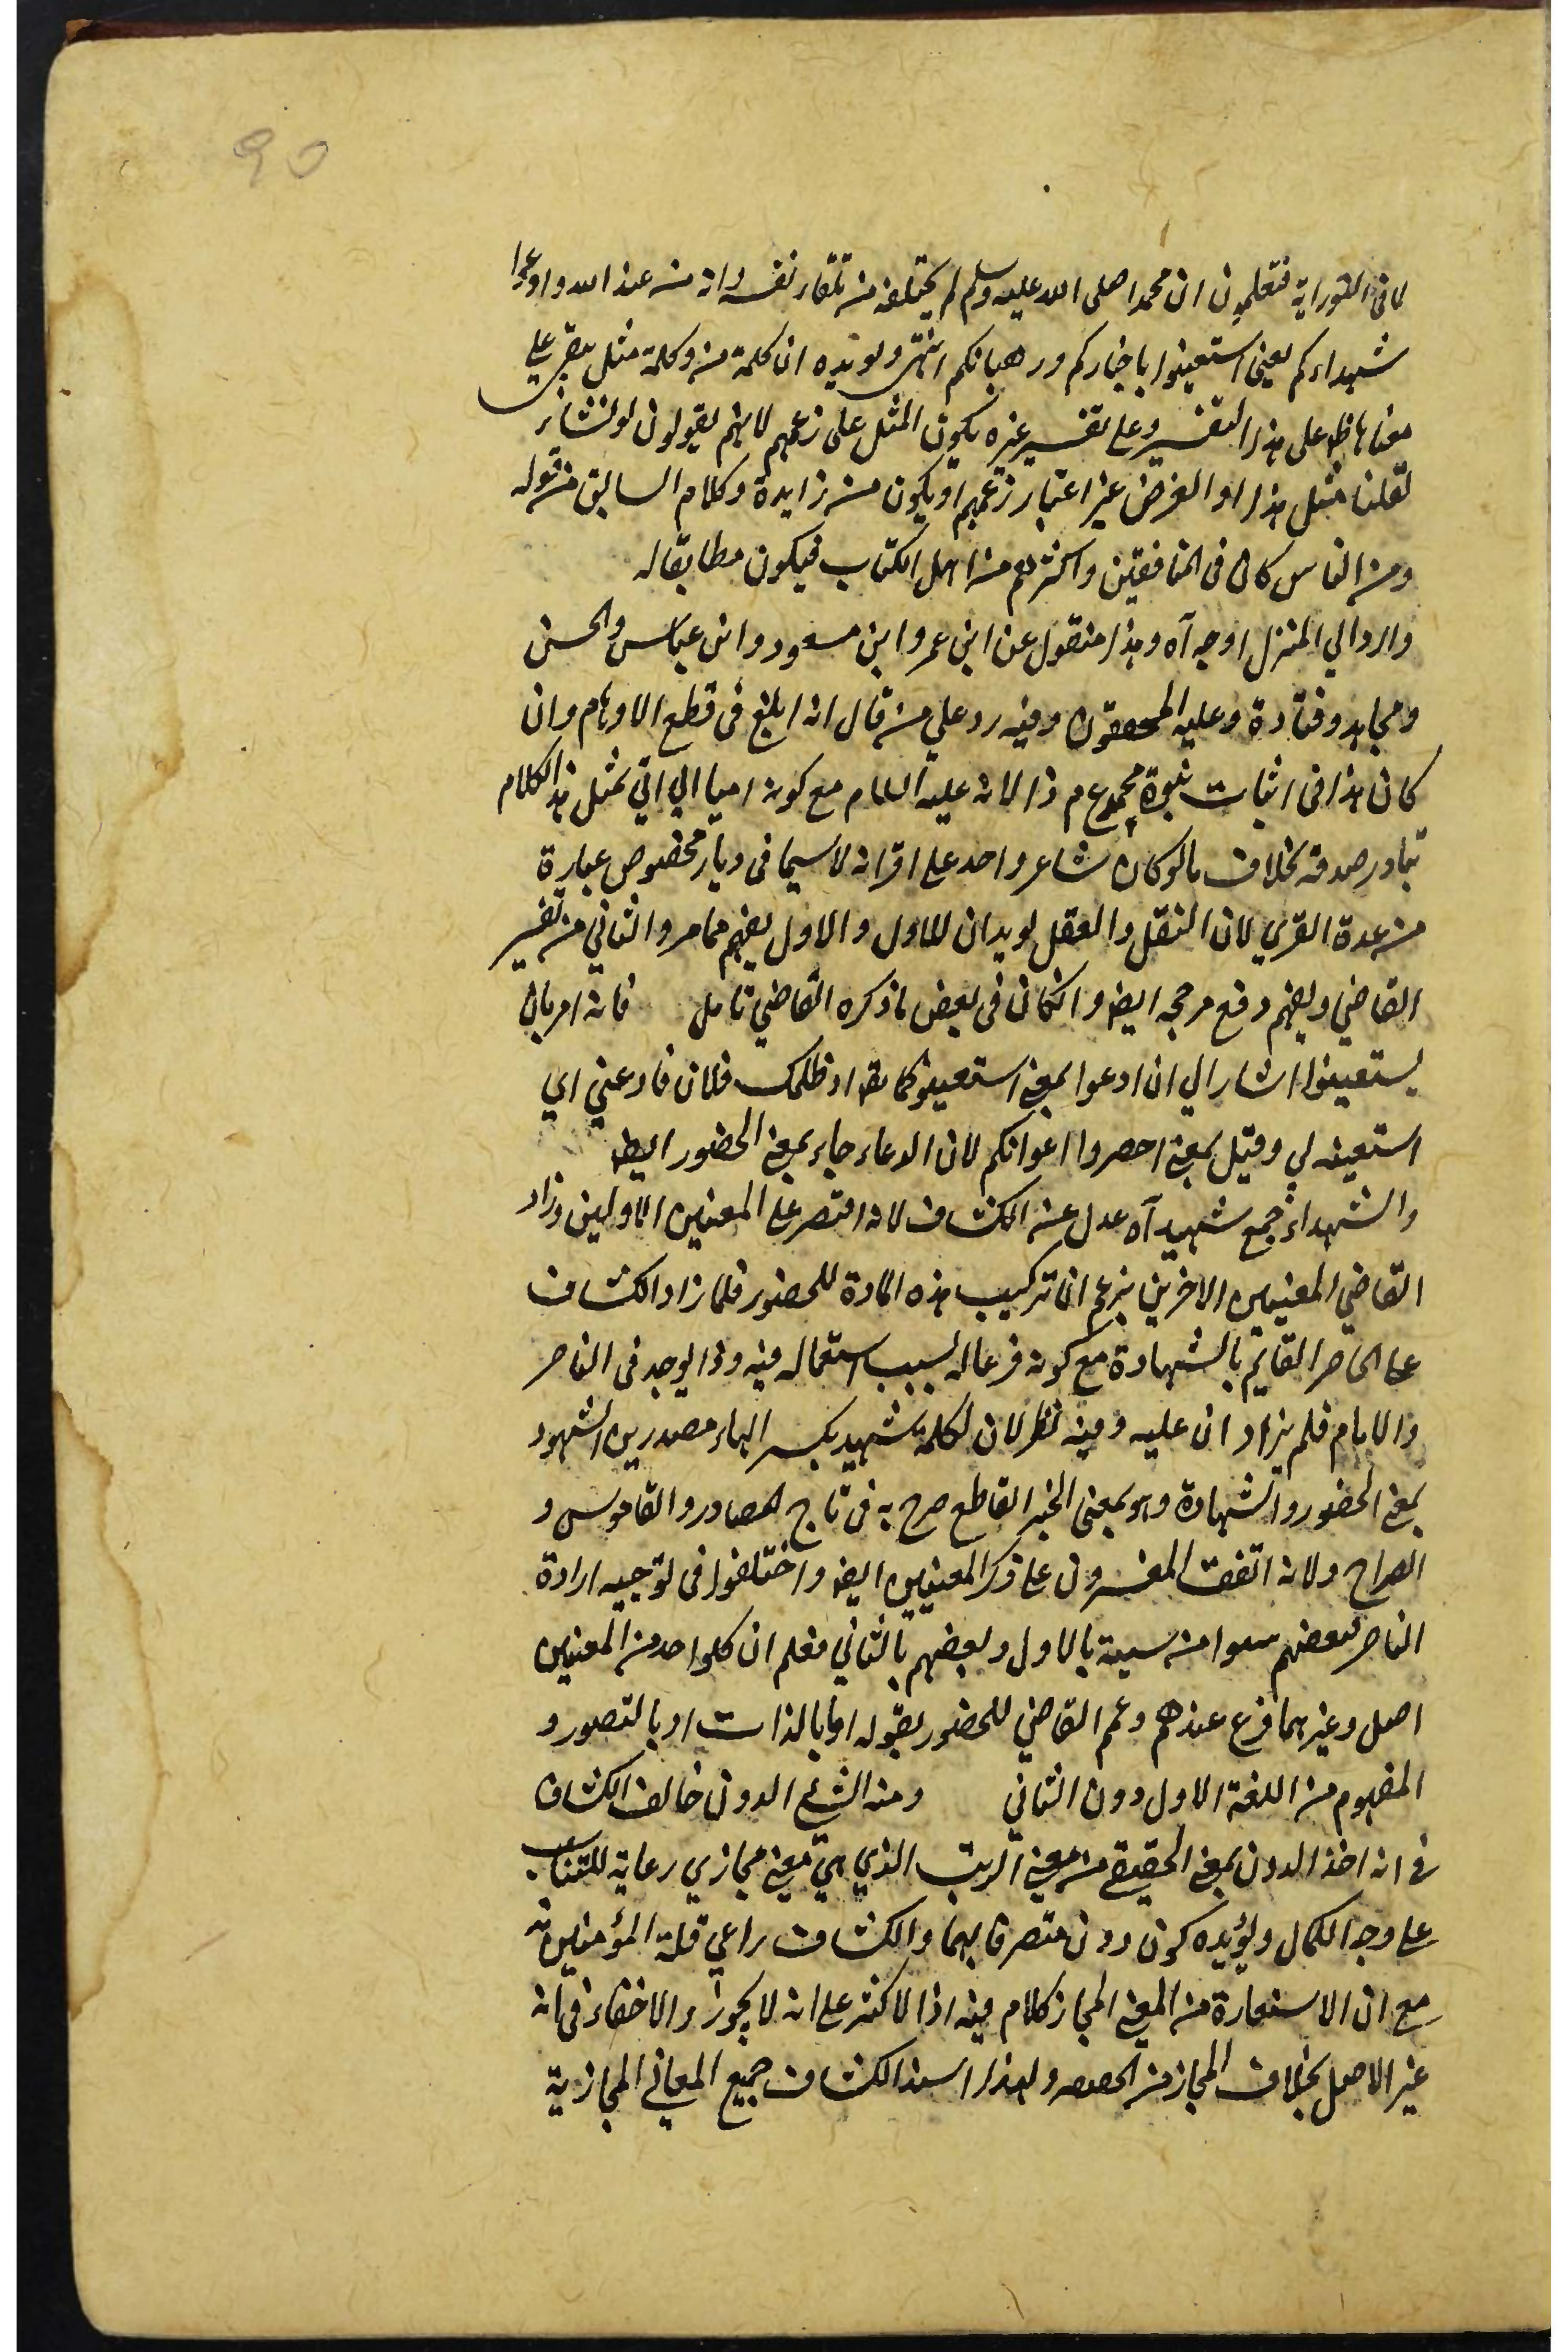 90
لما فى التوراية فتعلمون ان محمدا صلى الله عليه وسلم لم يختلقه من تلقاء نفسه وانه من عند الله وادعوا
شهداءكم يعنى استعينوا باحباركم ورهبانكم انتهى ويؤيده ان كلمة من وكلمة مثل يبقى على
معناها ظ على هذا التفسير وعلى تفسير غيره يكون المثل على زعمهم لانهم يقولون لو نشاء
لقلنا مثل هذا او الفرض غير اعتبار زعمهم او يكون من زايدة وكلام السابق من قوله
ومن الناس كان فى المنافقين واكثرهم من اهل الكتاب فيكون مطابقا له
والرد الي المنزل اوجه آه وهذا منقول عن ابن عمر وابن مسعود وابن عباس والحسن
ومجاهد وقتادة وعليه المحققون وفيه رد علي من قال انه ابلغ فى قطع الاوهام وان
كان هذا فى اثبات نبوة محمد ع م ذا لانه عليه السلام مع كونه اميا الي اتي بمثل هذا الكلام
تبادر صدقه بخلاف ما لو كان شاعر واحد على اقرانه لا سيما فى ديار مخصوص عبارة
من عدة القري لان النقل والعقل يويدان للاول والاول يفهم مما مر والثاني من تفسير
القاضي ويفهم دفع مرجحه ايضا وانكان فى بعض ما ذكره القاضي تامل فانه امر بان
يستعينوا اشار الي ان ادعوا بمعنى استعينوا كما يقا اذ ظلمك فلان فادعني اي
استعينه لي وقيل بمعنى احضروا اعوانكم لان الدعاء جاء بمعنى الحضور ايضا
والشهداء جمع شهيد آه عدل عن الكشاف لانه اقتصر على المعنيين الاولين وزاد
القاضي المعنيين الاخرين بزعم ان تركيب هذه المادة للحضور فلما زاد الكشاف
على الحاضر القايم بالشهادة مع كونه فرعا له بسبب استعماله فيه وذا يوجد فى الناصر
والامام فلم يزاد ان عليه وفيه نظر لان لكلمة شهيد بكسر الهاء مصدرين الشهود
بمعنى الحضور والشهادة وهو بمعنى الخبر القاطع صرح به فى تاج المصادر والقاموس و
الصراح ولانه اتفقت المفسرون على ذكر المعنيين ايضا واختلفوا فى توجيه ارادة
الناصر فبعضهم بالاول وبعضهم بالثاني فعلم ان كلواحد من المعنيين
اصل وغيرهما فرع عندهم وعمم القاضي للحضور بقوله اما بالذات او بالتصور و
المفهوم من اللغة الاول دون الثاني ومنه الشئ الدون خالف الكشاف
فى انه اخذ الدون بمعنى الحقيقي من معنى الرتب الذي هي معنى مجازي رعاية للتناسب
على وجه الكمال ويؤيده كون دون متصرفا بهما والكشاف راعي قلة المؤمنين فيه
مع ان الاستعارة من المعنى المجاز كلام فيه اذا الاكثر على انه لا يجوز والاخفاء فى انه
غير الاصل بخلاف المجاز من ولهذا اسند الكشاف جميع المعاني المجازية